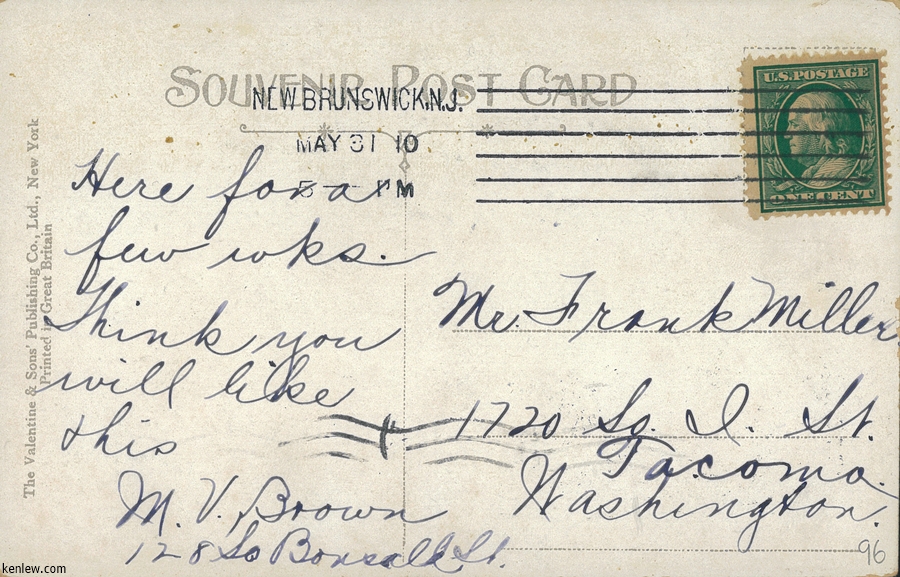 SOUVENIR POST CARD
NEW BRUNSWICK, N.J.
MAY 31 10
5 - PM
U.S. POSTAGE
ONE CENT
The Valentine & Sons' Publishing Co., Ltd., New York
Printed in Great Britain
Here for a
few wks.
Think you
will like
this
M. V. Brown
128 So Bonsall St.
Mr. Frank Miller
1720 So. I. St.
Tacoma.
Washington.
96
kenlew.com